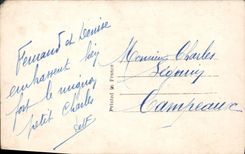 Fernand et Denise
embrassent bien
fort le mignon
petit Charles
Monsieur Charles
Campeaux
Printed in France